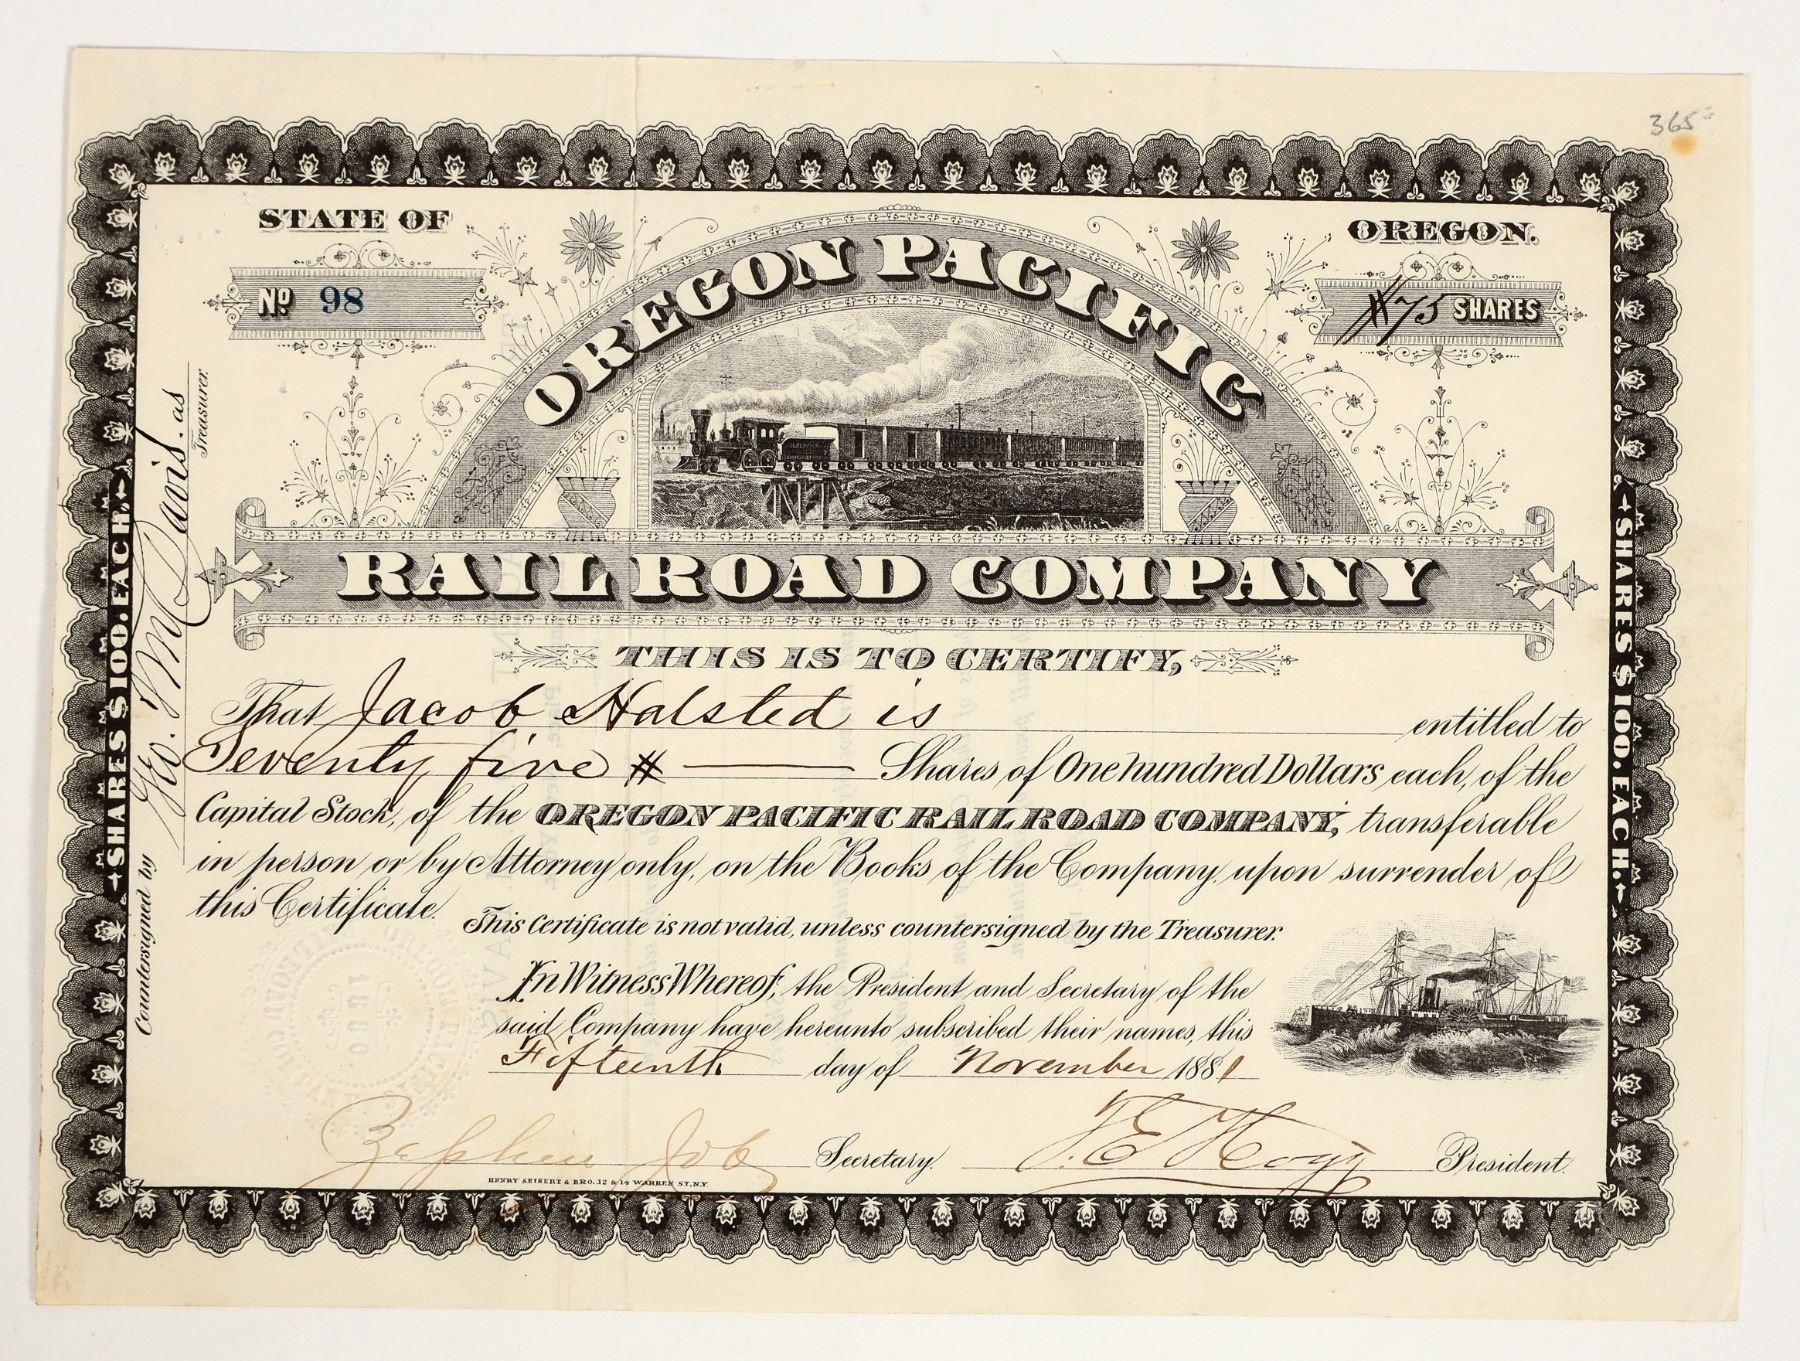 365
STATE OF
OREGON.
No 98
75 SHARES
OREGON PACIFIC
RAIL ROAD COMPANY
THIS IS TO CERTIFY,
That Jacob Halsted is entitled to
Seventy five # Shares of One hundred Dollars each, of the
Capital Stock, of the OREGON PACIFIC RAIL ROAD COMPANY, transferable
in person or by Attorney only, on the Books of the Company upon surrender of
this Certificate.
This Certificate is not valid, unless countersigned by the Treasurer.
In Witness Whereof, the President and Secretary of the
said Company have hereunto subscribed their names, this
Fifteenth day of November 1881
Zephin Job Secretary. T. E. Hogg President.
HENRY SEIBERT & BRO. 12 & 14 WARREN ST. N.Y.
Countersigned by Geo. Wm Davis. as Treasurer.
SHARES $100. EACH.
SHARES $100. EACH.
1880